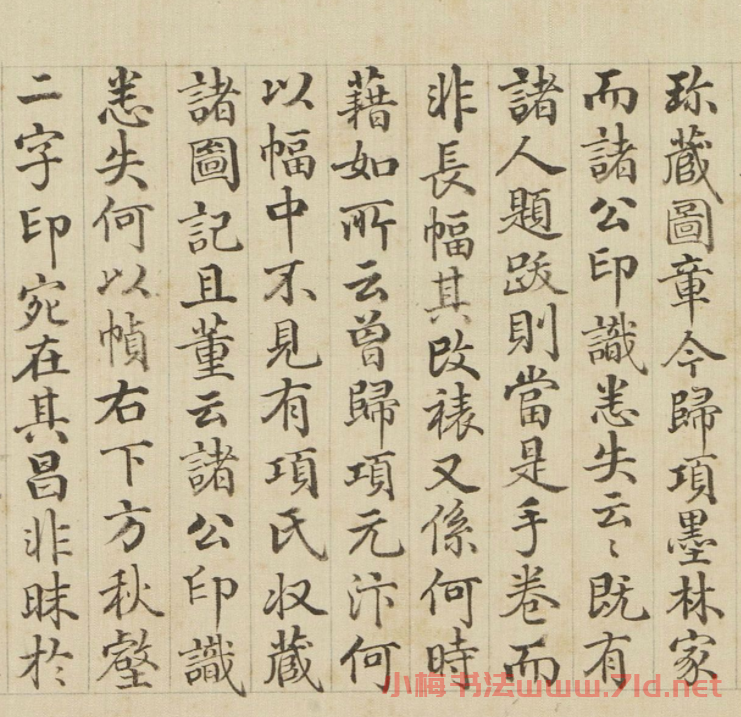 珎藏圖章今歸項墨林家
而諸公印識悉失云〻既有
諸人題跋則當是手卷而
非長幅其改裱又係何時
藉如所云曾歸項元汴何
以幅中不見有項氏収藏
諸圖記且董云諸公印識
悉失何以幀右下方秋壑
二字印宛在其昌非昧於
小梅书法www.7ld.net